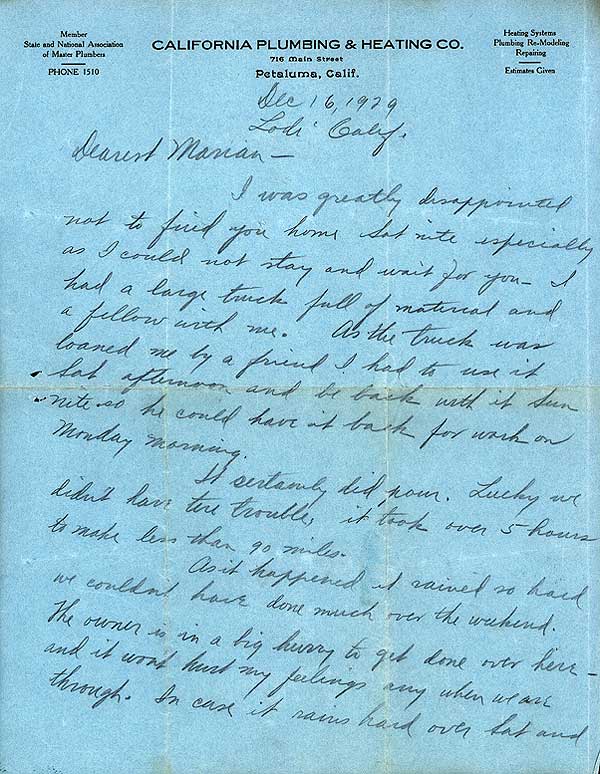 Member
State and National Association
of Master Plumbers
PHONE 1510
CALIFORNIA PLUMBING & HEATING CO.
716 Main Street
Petaluma, Calif.
Heating Systems
Plumbing Re-Modeling
Repairing
Estimates Given
Dec 16, 1929
Lodi Calif.
Dearest Marian—
I was greatly disappointed
not to find you home Sat nite especially
as I could not stay and wait for you— I
had a large truck full of material and
a fellow with me. As the truck was
loaned me by a friend I had to use it
Sat afternoon and be back with it Sun
nite so he could have it back for work on
Monday morning.
It certainly did pour. Lucky we
didn't have tire trouble, it took over 5 hours
to make less than 90 miles.
As it happened it rained so hard
we couldn't have done much over the weekend.
The owner is in a big hurry to get done over here—
and it wont hurt my feelings any when we are
through. In case it rains hard over Sat and